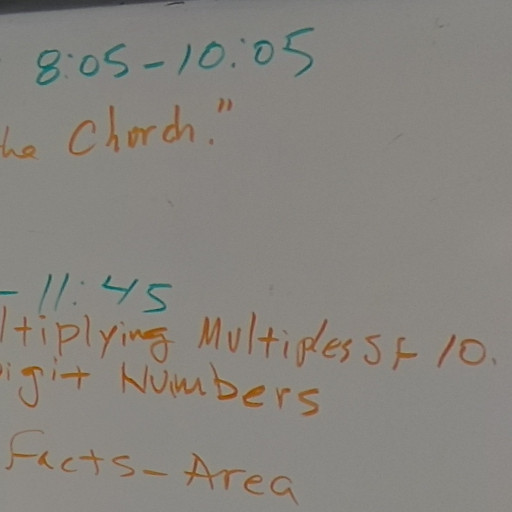 8:05-10:05
he Chorch."
- 11:45
ltiplying Multiples of 10.
igit Numbers
Facts-Area